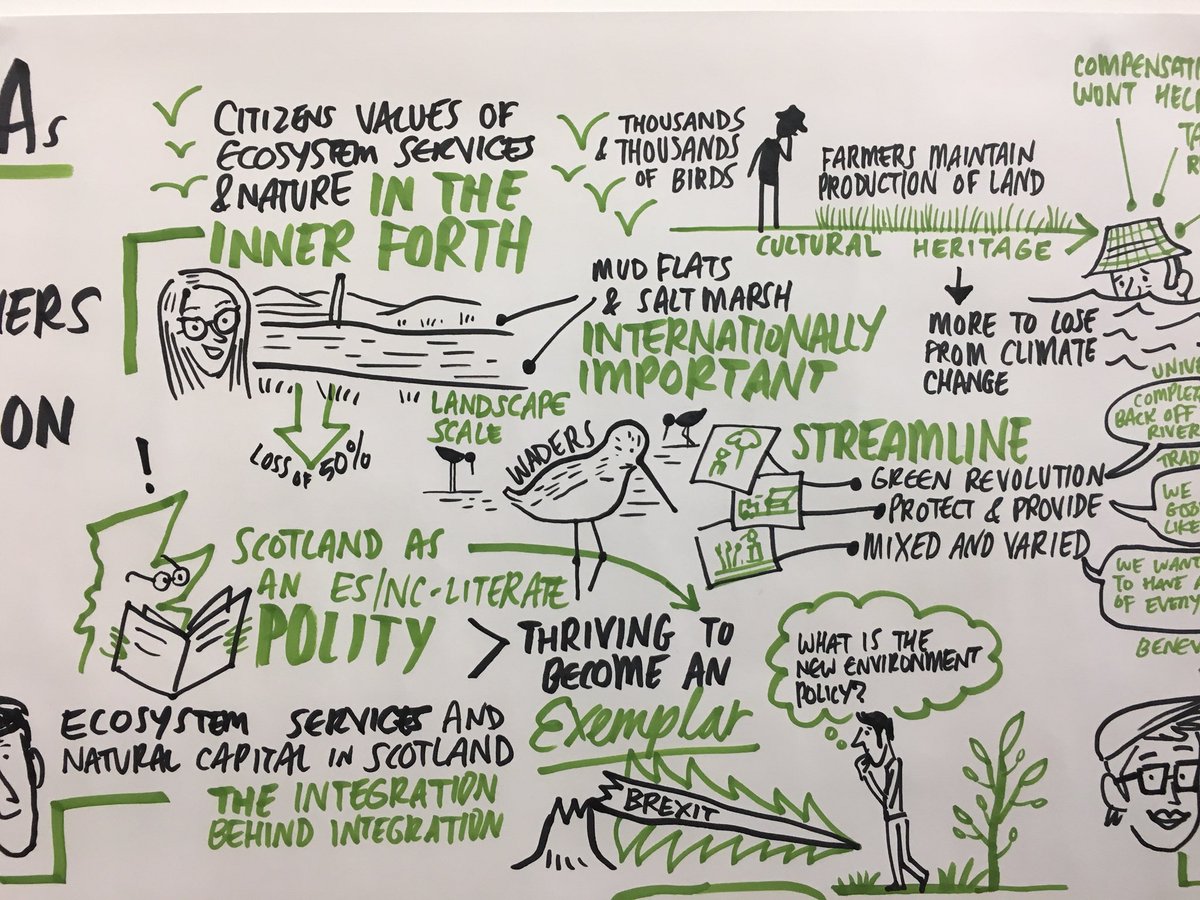 As
CITIZENS VALUES OF
ECOSYSTEM SERVICES
& NATURE IN THE
INNER FORTH
THOUSANDS
& THOUSANDS
OF BIRDS
FARMERS MAINTAIN
PRODUCTION OF LAND
CULTURAL HERITAGE
COMPENSATI
WONT HEL
MUD FLATS
& SALT MARSH
INTERNATIONALLY
IMPORTANT
MORE TO LOSE
FROM CLIMATE
CHANGE
ERS
ON
LANDSCAPE
SCALE
LOSS OF 50%
WADERS
STREAMLINE
GREEN REVOLUTION
PROTECT & PROVIDE
MIXED AND VARIED
UNIVE
COMPLET
BACK OFF
RIVER
TRAD
WE
GOS
LIKE
WE WANT
TO HAVE
OF EVERY
BENEV
!
SCOTLAND AS
AN ES/NC-LITERATE
POLITY
> THRIVING TO
BECOME AN
Exemplar
WHAT IS THE
NEW ENVIRONMENT
POLICY?
ECOSYSTEM SERVICES AND
NATURAL CAPITAL IN SCOTLAND
THE INTEGRATION
BEHIND INTEGRATION
BREXIT